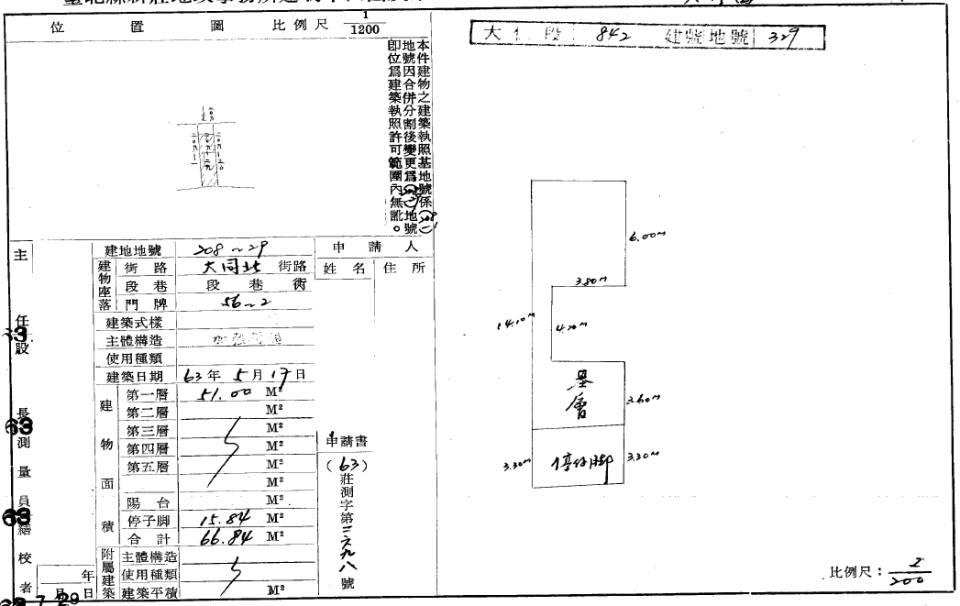 位置圖 比例尺 1/1200
本件建物之建築執照基地號係
地號因合併分割後變更為 地號
即位爲建築執照許可範圍內無訛。
大 段 842 建號地號 329
6.00m
3.80m
14.10m
4.20m
基層
3.60m
3.30m
停仔脚
3.30m
比例尺：
200
主任
設
長
測量員
繪校者
年
月 日
63
63
63
7 29
建地地號 208~29
建物座落
街路 大同北 街路
段巷 段巷衖
門牌 56~2
建築式樣
主體構造
使用種類
建築日期 63年5月17日
建物面積
第一層 51.00 M²
第二層 M²
第三層 M²
第四層 M²
第五層 M²
M²
陽台 M²
停子脚 15.84 M²
合計 66.84 M²
附屬建築
主體構造
使用種類
建築平積 M²
申請人
姓名 住所
申請書
(63)莊測字第二六九八號